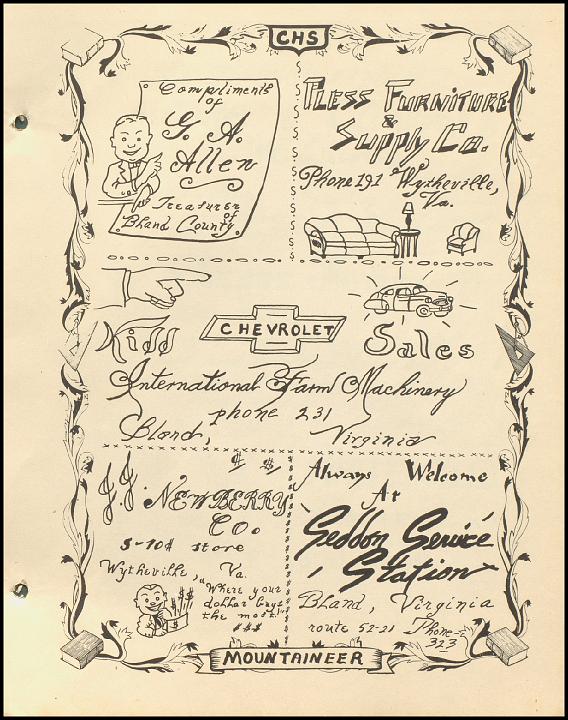 CHS
Compliments
of
G. A.
Allen
Treasurer
of
Bland County
PLESS FURNITURE
&
Supply Co.
Phone 191 Wytheville,
Va.
Kidd
CHEVROLET
Sales
International Farm Machinery
phone 231
Bland, Virginia
$ $
J.J. NEWBERRY
CO.
5-10¢ store
Wytheville, Va.
"Where your
dollar buys
the most!"
$$$
Always Welcome
At
Seddon Service
Station
Bland, Virginia
route 52-21 Phone
323
MOUNTAINEER